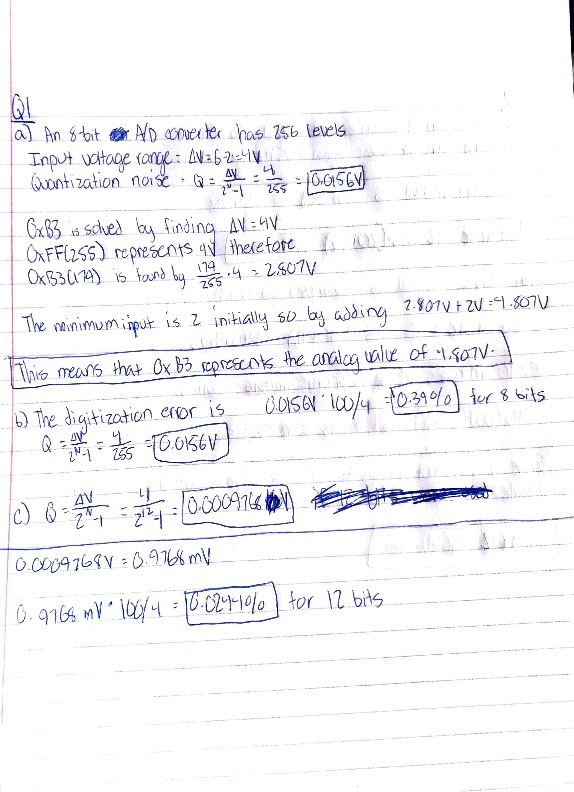 Q1
a) An 8-bit A/D converter has 256 levels
Input voltage range: ΔV=6-2=4V
Quantization noise · Q = ΔV/2^N-1 = 4/255 = 0.0156V
0xB3 is solved by finding ΔV=4V
0xFF(255) represents 4V therefore
0xB3(179) is found by 179/255 · 4 = 2.807V
The minimum input is 2 initially so by adding 2.807V + 2V = 4.807V
This means that 0xB3 represents the analog value of 4.807V.
b) The digitization error is 0.0156V · 100/4 = 0.39% for 8 bits
Q = ΔV/2^N-1 = 4/255 = 0.0156V
c) Q = ΔV/2^N-1 = 4/2^12-1 = 0.0009768V
0.0009768V = 0.9768mV
0.9768 mV · 100/4 = 0.0244% for 12 bits